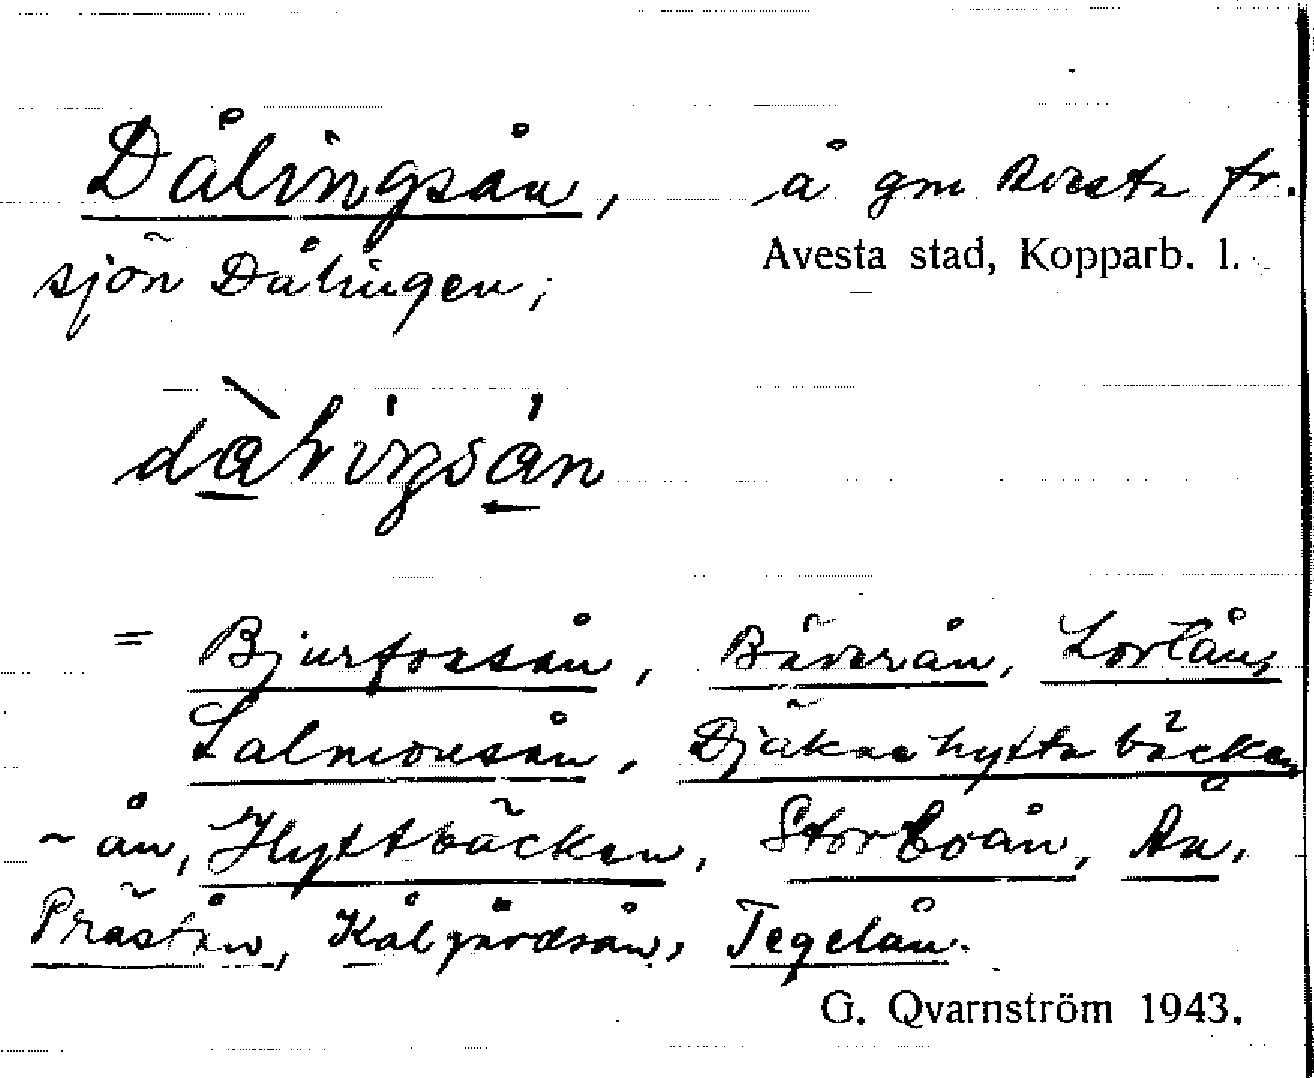 Dålingsån, å gm Avesta fr.
Avesta stad, Kopparb. l.
sjön Dålingen;
= Bjurforsån, Bäverån, Lortån,
Salmonsån, Djäknehytte bäcken
~ån, Hyttbäcken, Storboån, Ån,
Prästån, Kålgårdsån, Tegelån.
G. Qvarnström 1943.